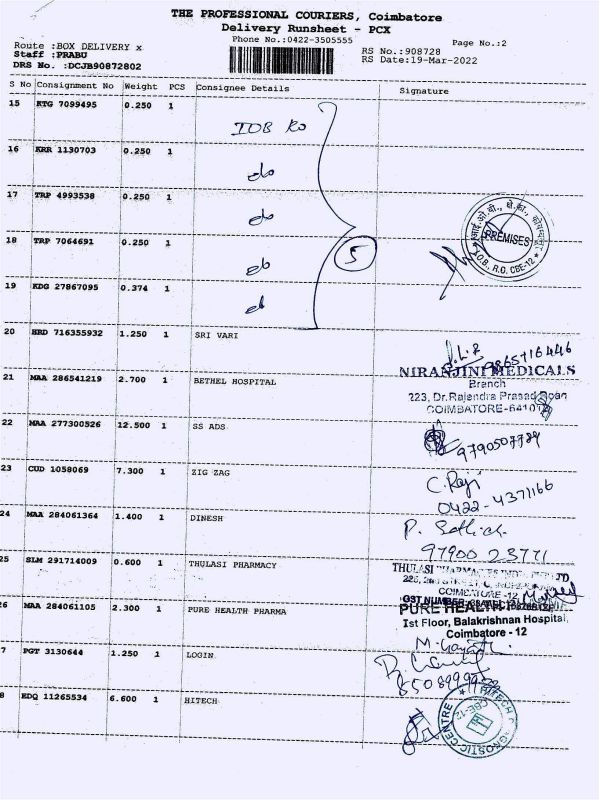 THE PROFESSIONAL COURIERS, Coimbatore
Delivery Runsheet - PCX
Phone No.:0422-3505555
Page No.:2
Route :BOX DELIVERY x
Staff :PRABU
DRS No. :DCJB90872802
RS No.:908728
RS Date:19-Mar-2022
S No Consignment No Weight PCS Consignee Details Signature
15 KTG 7099495 0.250 1
IOB RO
16 KRR 1130703 0.250 1
do
17 TRP 4993538 0.250 1
do
18 TRP 7064691 0.250 1
do
5
PREMISES
I.O.B., R.O. CBE-12
19 KDG 27867095 0.374 1
do
20 HRD 716355932 1.250 1 SRI VARI
9865716446
21 MAA 286541219 2.700 1 BETHEL HOSPITAL
NIRANJINI MEDICALS
Branch
223, Dr.Rajendra Prasad Road
COIMBATORE-641012
22 MAA 277300526 12.500 1 SS ADS
9790507739
23 CUD 1058069 7.300 1 ZIG ZAG
C. Raji
0422-4371166
24 MAA 284061364 1.400 1 DINESH
97900 23771
25 SLM 291714009 0.600 1 THULASI PHARMACY
THULASI
COIMBATORE -12
GST NUMBER
26 MAA 284061105 2.300 1 PURE HEALTH PHARMA
PURE HEALTH
Ist Floor, Balakrishnan Hospital,
Coimbatore - 12
7 PGT 3130644 1.250 1 LOGIN
8508999950
8 EDQ 11265534 6.600 1 HITECH
HITECH DIAGNOSTIC CENTRE
CBE-12